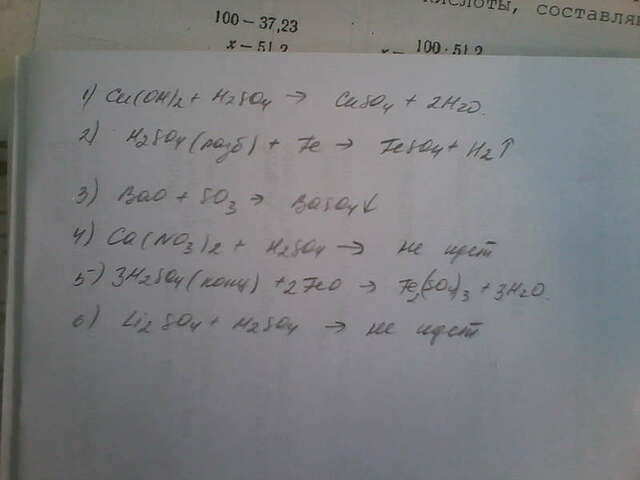 кислоты, составля
100 – 37,23
x – 51,2
x – 100 · 51,2
1) Cu(OH)2 + H2SO4 → CuSO4 + 2H2O.
2) H2SO4 (разб) + Fe → FeSO4 + H2↑
3) BaO + SO3 → BaSO4↓
4) Ca(NO3)2 + H2SO4 → не идет
5) 3H2SO4 (конц) + 2FeO → Fe2(SO4)3 + 3H2O.
6) Li2SO4 + H2SO4 → не идет